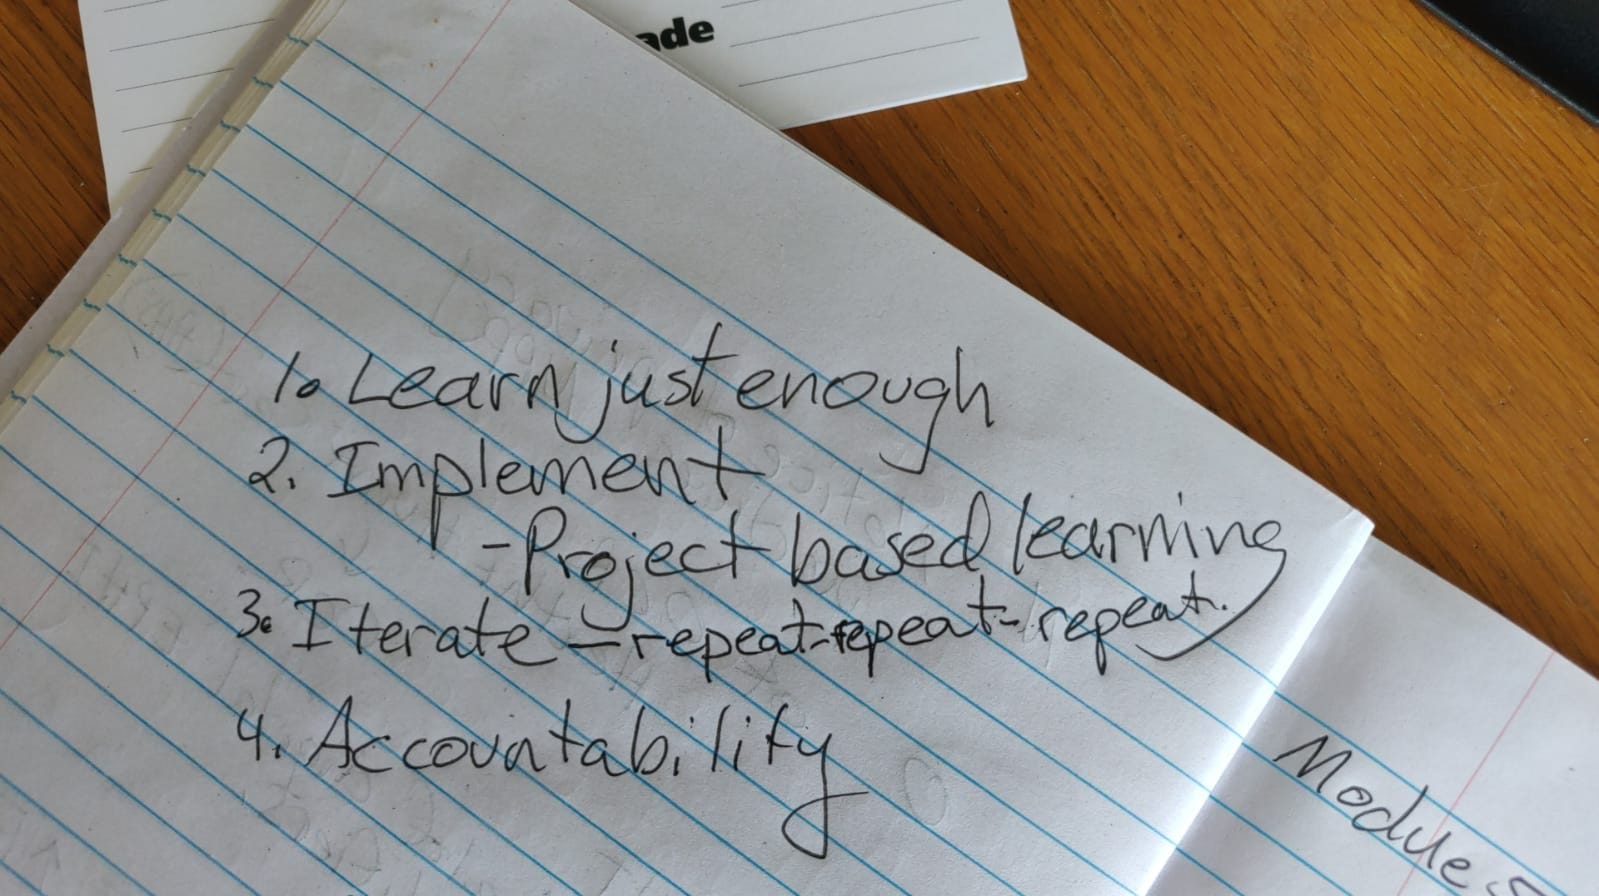 ade
1. Learn just enough
2. Implement
- Project based learning
3. Iterate - repeat-repeat-repeat.
4. Accountability
Module